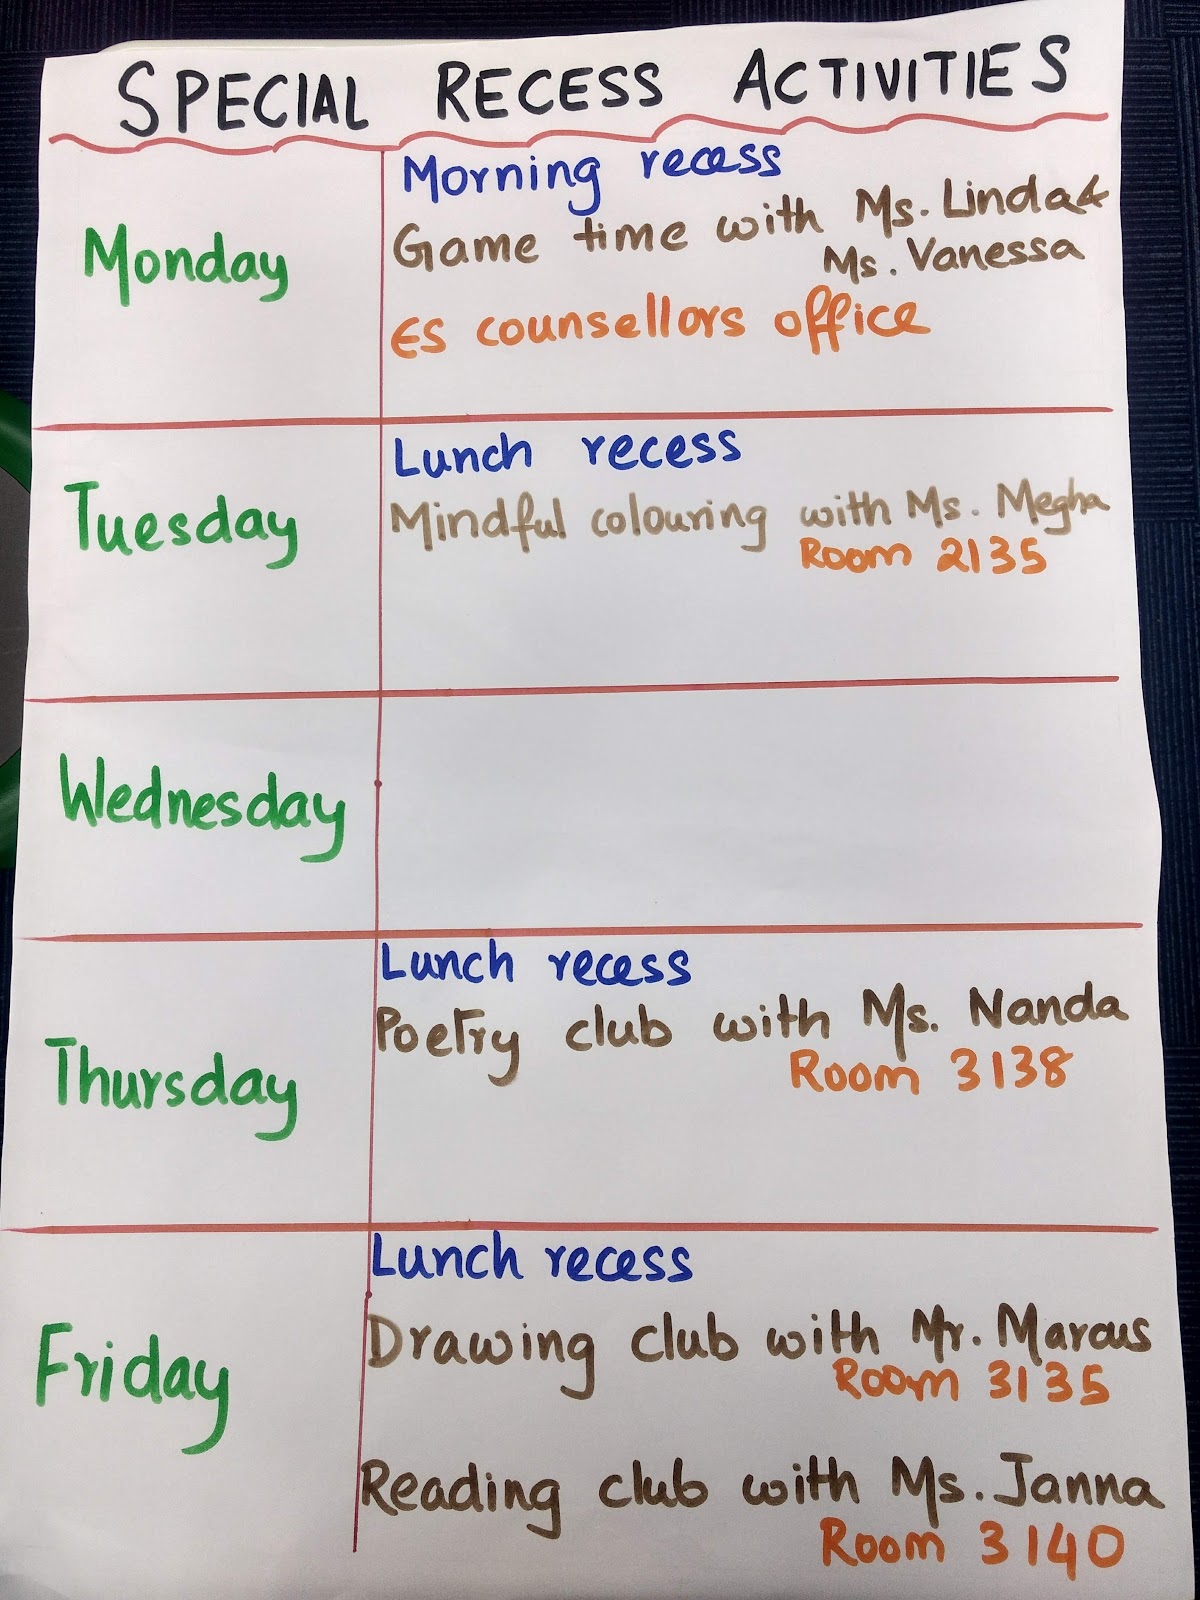 SPECIAL RECESS ACTIVITIES
Monday
Morning recess
Game time with Ms. Linda &
Ms. Vanessa
ES counsellors office
Tuesday
Lunch recess
Mindful colouring with Ms. Megha
Room 2135
Wednesday
Thursday
Lunch recess
Poetry club with Ms. Nanda
Room 3138
Friday
Lunch recess
Drawing club with Mr. Marcus
Room 3135
Reading club with Ms. Janna
Room 3140